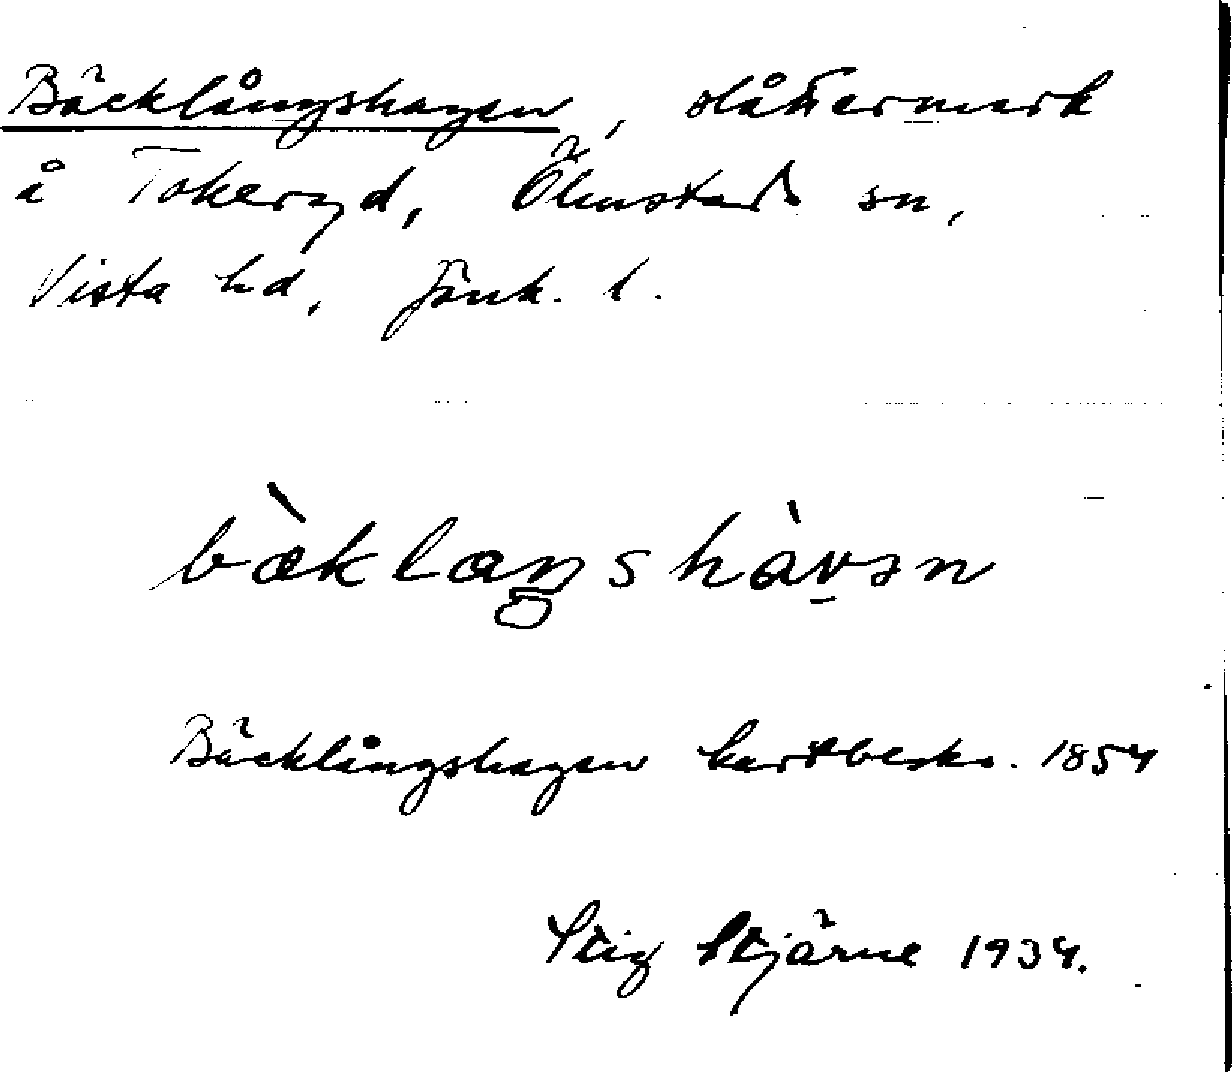 Bäcklångshagen, slåttermark
å Tokeryd, Ölmstads sn,
Vista hd, Jönk. l.
bæ̀klaŋshàvən
Bäcklångshagen kartbeskr. 1854
Stig Stjärne 1934.